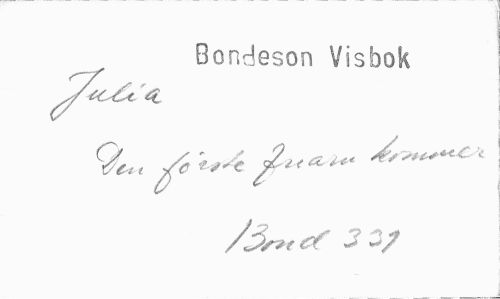 Bondeson Visbok
Julia
Den förste kommer
Bond 339